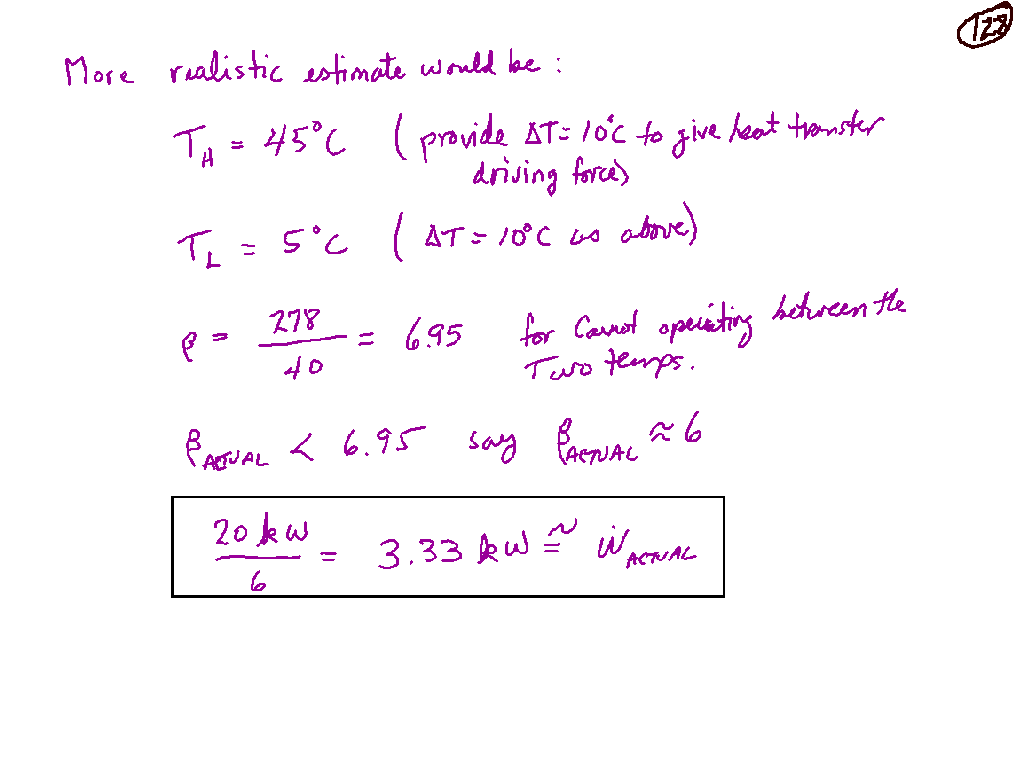 128
More realistic estimate would be :
T_H = 45°C ( provide ΔT = 10°C to give heat transfer
driving force)
T_L = 5°C ( ΔT = 10°C as above)
β = 278/40 = 6.95 for Carnot operating between the
Two temps.
β_ACTUAL < 6.95 say β_ACTUAL ≈ 6
20 kW/6 = 3.33 kW ≅ Ẇ_ACTUAL